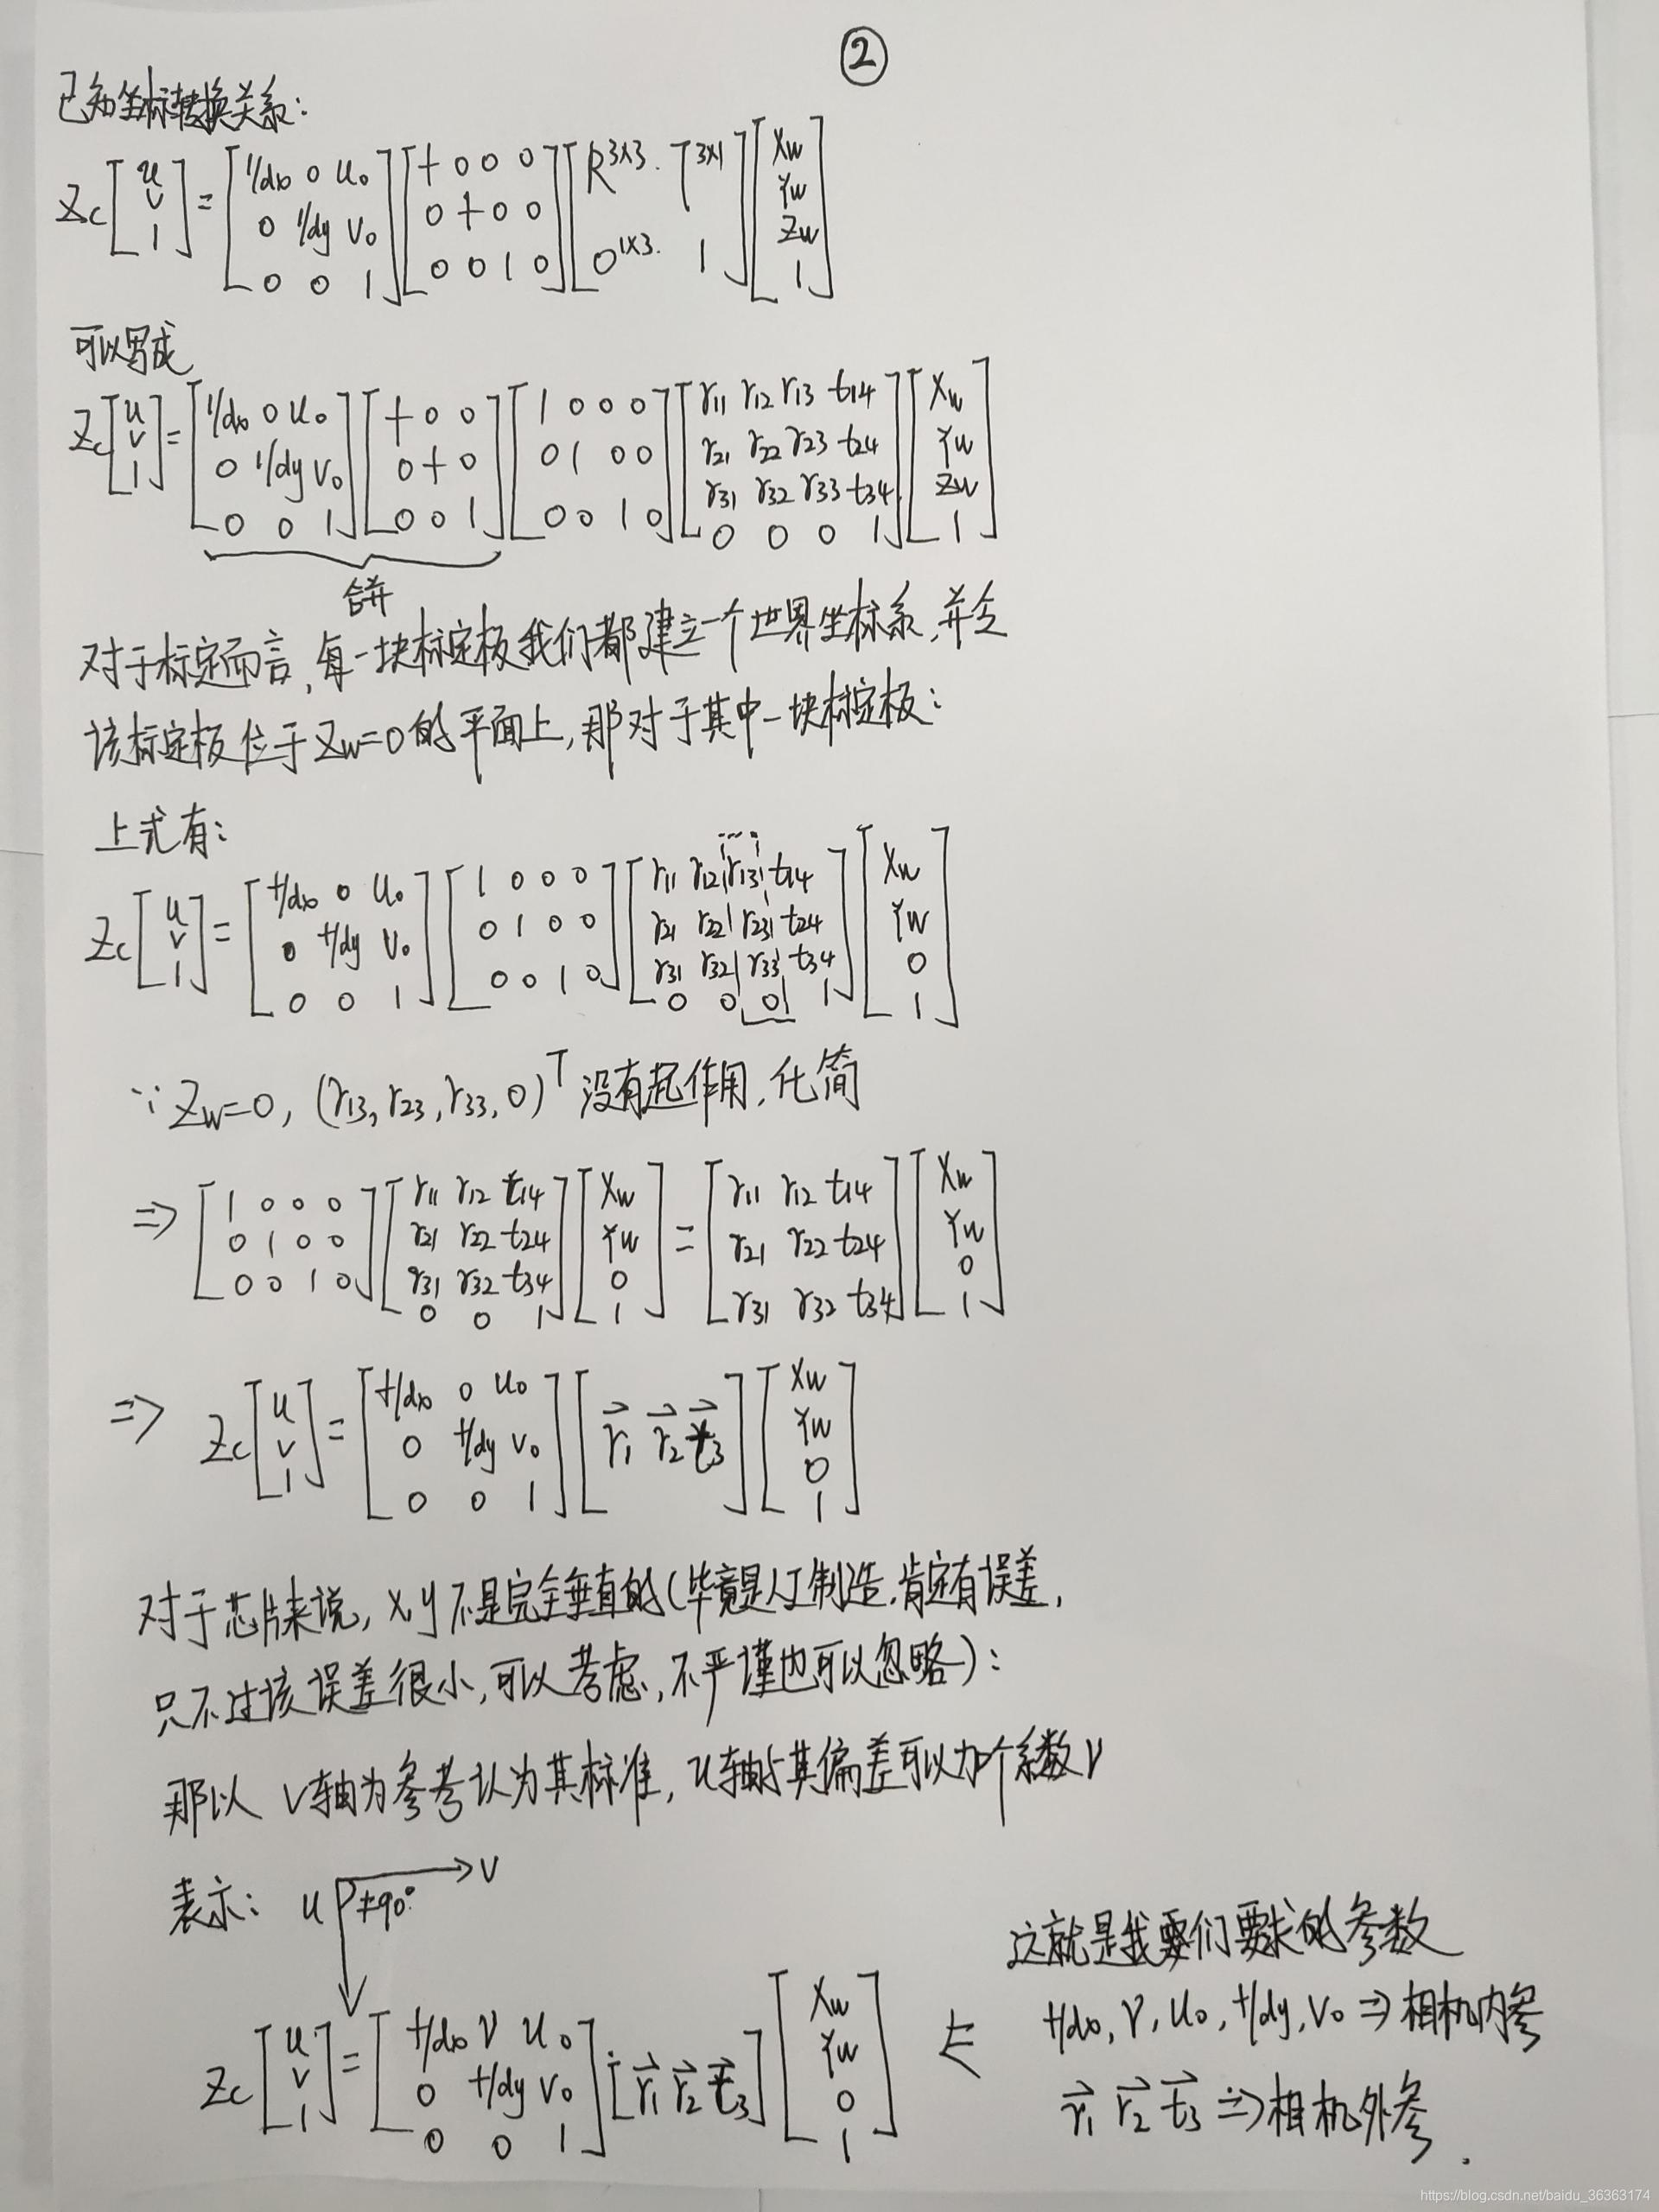 ②
已知坐标转换关系:
Zc [u; v; 1] = [1/dx 0 u₀; 0 1/dy v₀; 0 0 1] [f 0 0 0; 0 f 0 0; 0 0 1 0] [R³ˣ³ T³ˣ¹; 0¹ˣ³ 1] [Xw; Yw; Zw; 1]
可以写成
Zc [u; v; 1] = [1/dx 0 u₀; 0 1/dy v₀; 0 0 1] [f 0 0; 0 f 0; 0 0 1] [1 0 0 0; 0 1 0 0; 0 0 1 0] [r11 r12 r13 t14; r21 r22 r23 t24; r31 r32 r33 t34; 0 0 0 1] [Xw; Yw; Zw; 1]
合并
对于标定而言,每一块标定板我们都建立一个世界坐标系,并令
该标定板位于Zw=0的平面上,那对于其中一块标定板:
上式有:
Zc [u; v; 1] = [f/dx 0 u₀; 0 f/dy v₀; 0 0 1] [1 0 0 0; 0 1 0 0; 0 0 1 0] [r11 r12 r13 t14; r21 r22 r23 t24; r31 r32 r33 t34; 0 0 0 1] [Xw; Yw; 0; 1]
∵ Zw=0, (r13, r23, r33, 0)ᵀ 没有起作用,化简
⇒ [1 0 0 0; 0 1 0 0; 0 0 1 0] [r11 r12 t14; r21 r22 t24; r31 r32 t34; 0 0 1] [Xw; Yw; 0; 1] = [r11 r12 t14; r21 r22 t24; r31 r32 t34] [Xw; Yw; 0; 1]
⇒ Zc [u; v; 1] = [f/dx 0 u₀; 0 f/dy v₀; 0 0 1] [r⃗1 r⃗2 t⃗3] [Xw; Yw; 0; 1]
对于芯片来说, x,y不是完全垂直的(毕竟是人工制造,肯定有误差,
只不过该误差很小,可以考虑,不严谨也可以忽略):
那以 v轴为参考认为其标准, u轴与其偏差可以加个系数γ
表示: u ≠90° v
Zc [u; v; 1] = [f/dx γ u₀; 0 f/dy v₀; 0 0 1] [r⃗1 r⃗2 t⃗3] [Xw; Yw; 0; 1] ⇐
这就是我们要求的参数
f/dx, γ, u₀, f/dy, v₀ ⇒ 相机内参
r⃗1 r⃗2 t⃗3 ⇒ 相机外参.
https://blog.csdn.net/baidu_36363174